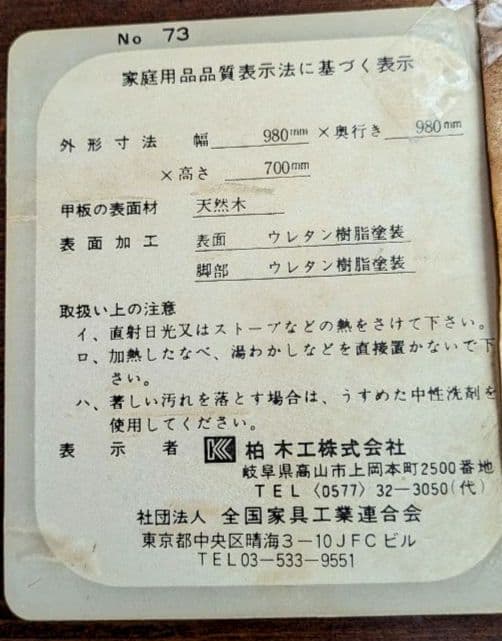 No 73
家庭用品品質表示法に基づく表示
外形寸法 幅 980mm ×奥行き 980mm
×高さ 700mm
甲板の表面材 天然木
表面加工 表面 ウレタン樹脂塗装
脚部 ウレタン樹脂塗装
取扱い上の注意
イ、直射日光又はストーブなどの熱をさけて下さい。
ロ、加熱したなべ、湯わかしなどを直接置かないで下
さい。
ハ、著しい汚れを落とす場合は、うすめた中性洗剤を
使用してください。
表示者 柏木工株式会社
岐阜県高山市上岡本町2500番地
TEL〈0577〉32—3050(代)
社団法人 全国家具工業連合会
東京都中央区晴海3－10JFCビル
TEL03－533－9551